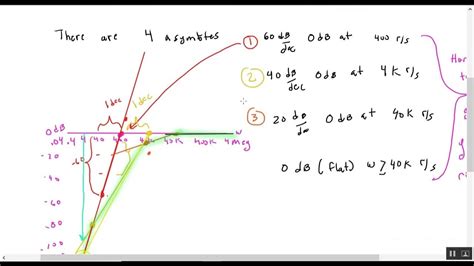 There are 4 asymtotes
1 60 dB/dec 0 dB at 400 r/s
2 40 dB/dec 0 dB at 4K r/s
3 20 dB/dec 0 dB at 40K r/s
0 dB (flat) ω ≥ 40K r/s
1 dec 1 dec
0 dB
ω
.04 .4 4 40 400 4K 40K 400K 4 meg
-20
-40
-60
-80
-100
-60